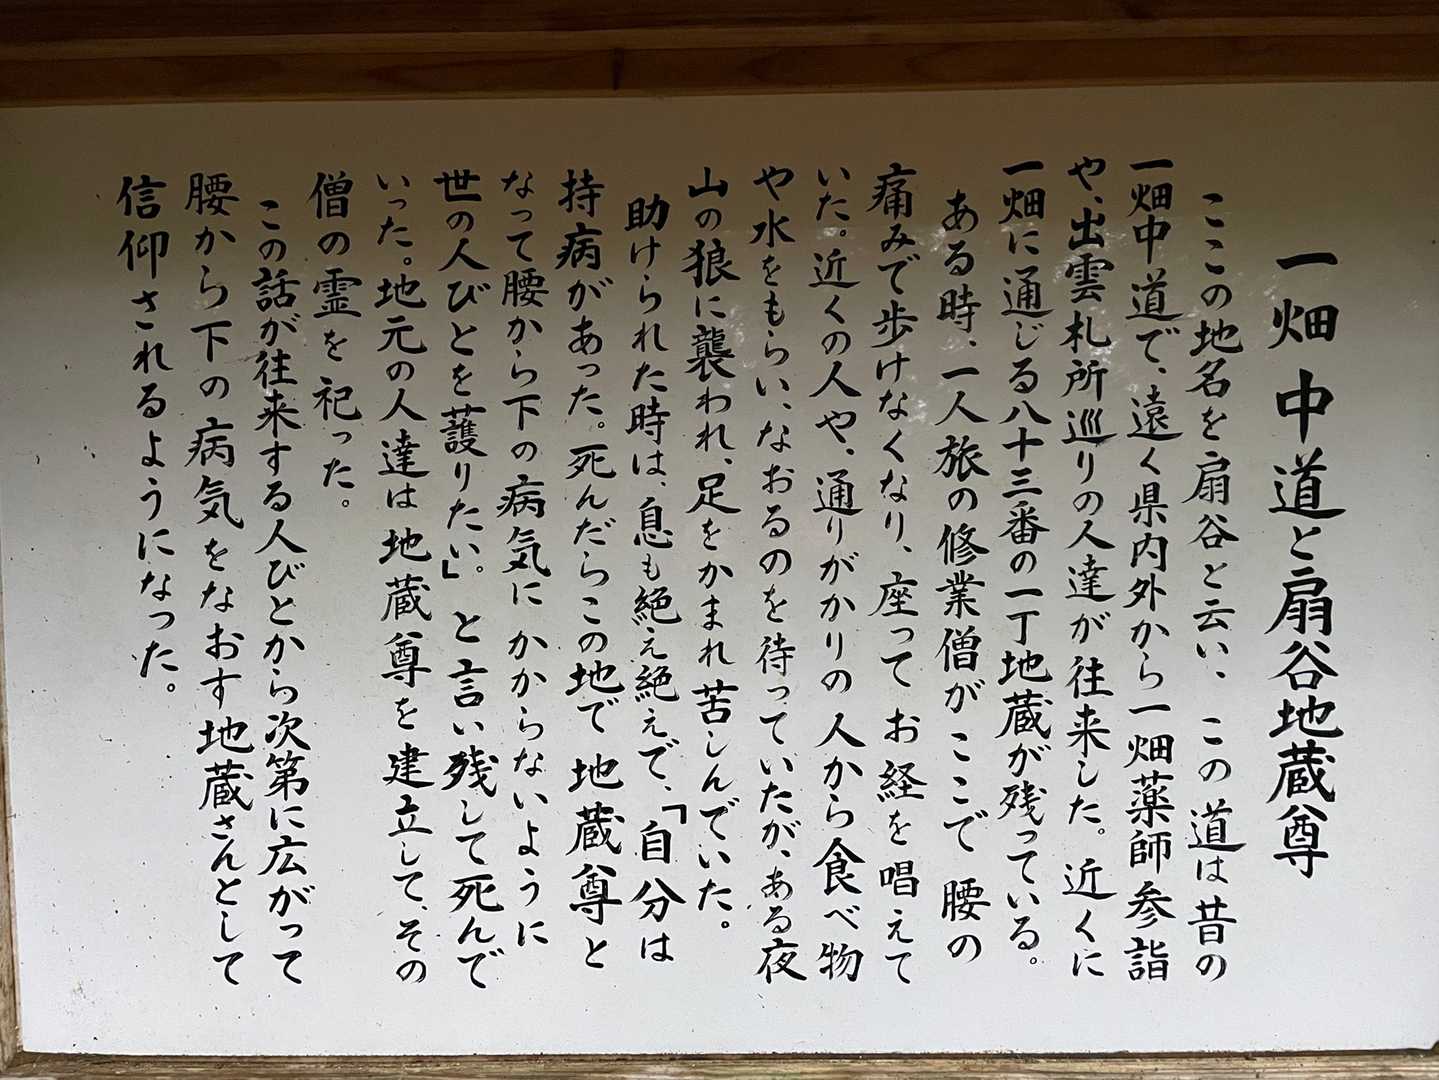 一畑中道と扇谷地蔵尊
ここの地名を扇谷と云い、この道は昔の
一畑中道で、遠く県内外から一畑薬師参詣
や、出雲札所巡りの人達が往来した。近くに
一畑に通じる八十三番の一丁地蔵が残っている。
ある時、一人旅の修業僧がここで腰の
痛みで歩けなくなり、座ってお経を唱えて
いた。近くの人や、通りがかりの人から食べ物
や水をもらい、なおるのを待っていたが、ある夜
山の狼に襲われ、足をかまれ苦しんでいた。
助けられた時は、息も絶え絶えで、「自分は
持病があった。死んだらこの地で地蔵尊と
なって腰から下の病気にかからないように
世の人びとを護りたい」。と言い残して死んで
いった。地元の人達は地蔵尊を建立して、その
僧の霊を祀った。
この話が往来する人びとから次第に広がって
腰から下の病気をなおす地蔵さんとして
信仰されるようになった。